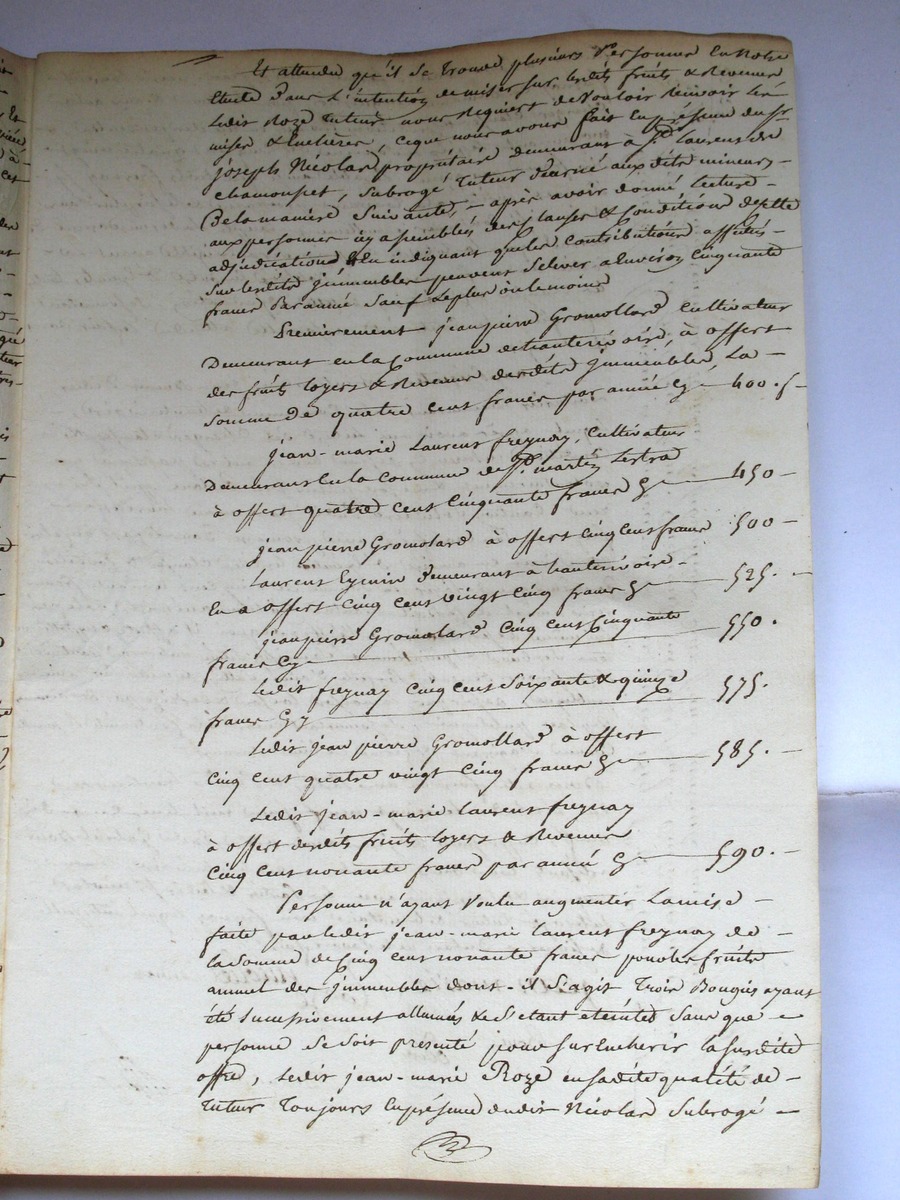 Et attendu qu'il se trouve plusieurs Personnes En Notre
Etude Dans L'intention de miser sur lesdits fruits & Revenus
Ledit Roze Tuteur nous Requiert de vouloir Recevoir les
mises & Encheres, ce que nous avons fait En présence du Sr
joseph Nicolas propriétaire demeurant à St laurent de
chamousset, subrogé Tuteur Décerné aux dits mineurs –
De la maniere suivante, – après avoir donné Lecture –
aux personnes icy assemblées des Clauses & Conditions de cette
adjudication & En indiquant que les contributions affectés –
sur lesdits jmmeubles peuvent s'elever a Environ cinquante
francs Par année sauf le plus ou le moins
Premierement jean pierre Gromollard Cultivateur
Demeurant en la Commune de hauterivoire, à offert
des fruits loyers & Revenus desdits jmmeubles, La –
somme De quatre cent francs par année Cy – 400 . f –
jean-marie Laurent freynay, Cultivateur
Demeurant En la Commune de St martin Lestra
à offert quatre cent Cinquante francs Cy 450 –
jean pierre Gromolard à offert Cinq Cent francs 500 –
Laurent Eymin demeurant à hauterivoire –
En a offert Cinq cent vingt Cinq francs Cy 525. –
jean pierre Gromolard Cinq cent Cinquante
francs Cy 550 .
Ledit freynay Cinq Cent Soixante & quinze
francs Cy 575.
Ledit jean pierre Gromollard à offert
Cinq cent quatre vingt Cinq francs Cy 585. –
Ledit jean-marie laurent freynay
à offert desdits fruits loyers & Revenus
Cinq Cent nonante francs par année Cy 590. –
Personne n'ayant Voulu augmenter La mise –
faite par ledit jean-marie laurent freynay de –
la somme de Cinq Cent nonante francs pour les fruits
annuel des jmmeubles dont – il S'agit Trois Bougies ayant
été Sucessivement allumés & S'etant eteintes Sans que –
personne se soit presenté pour surEncherir la susdite
offre, Ledit jean-marie Roze en sadite qualité de –
Tuteur Toujours En présence dudit Nicolas Subrogé –